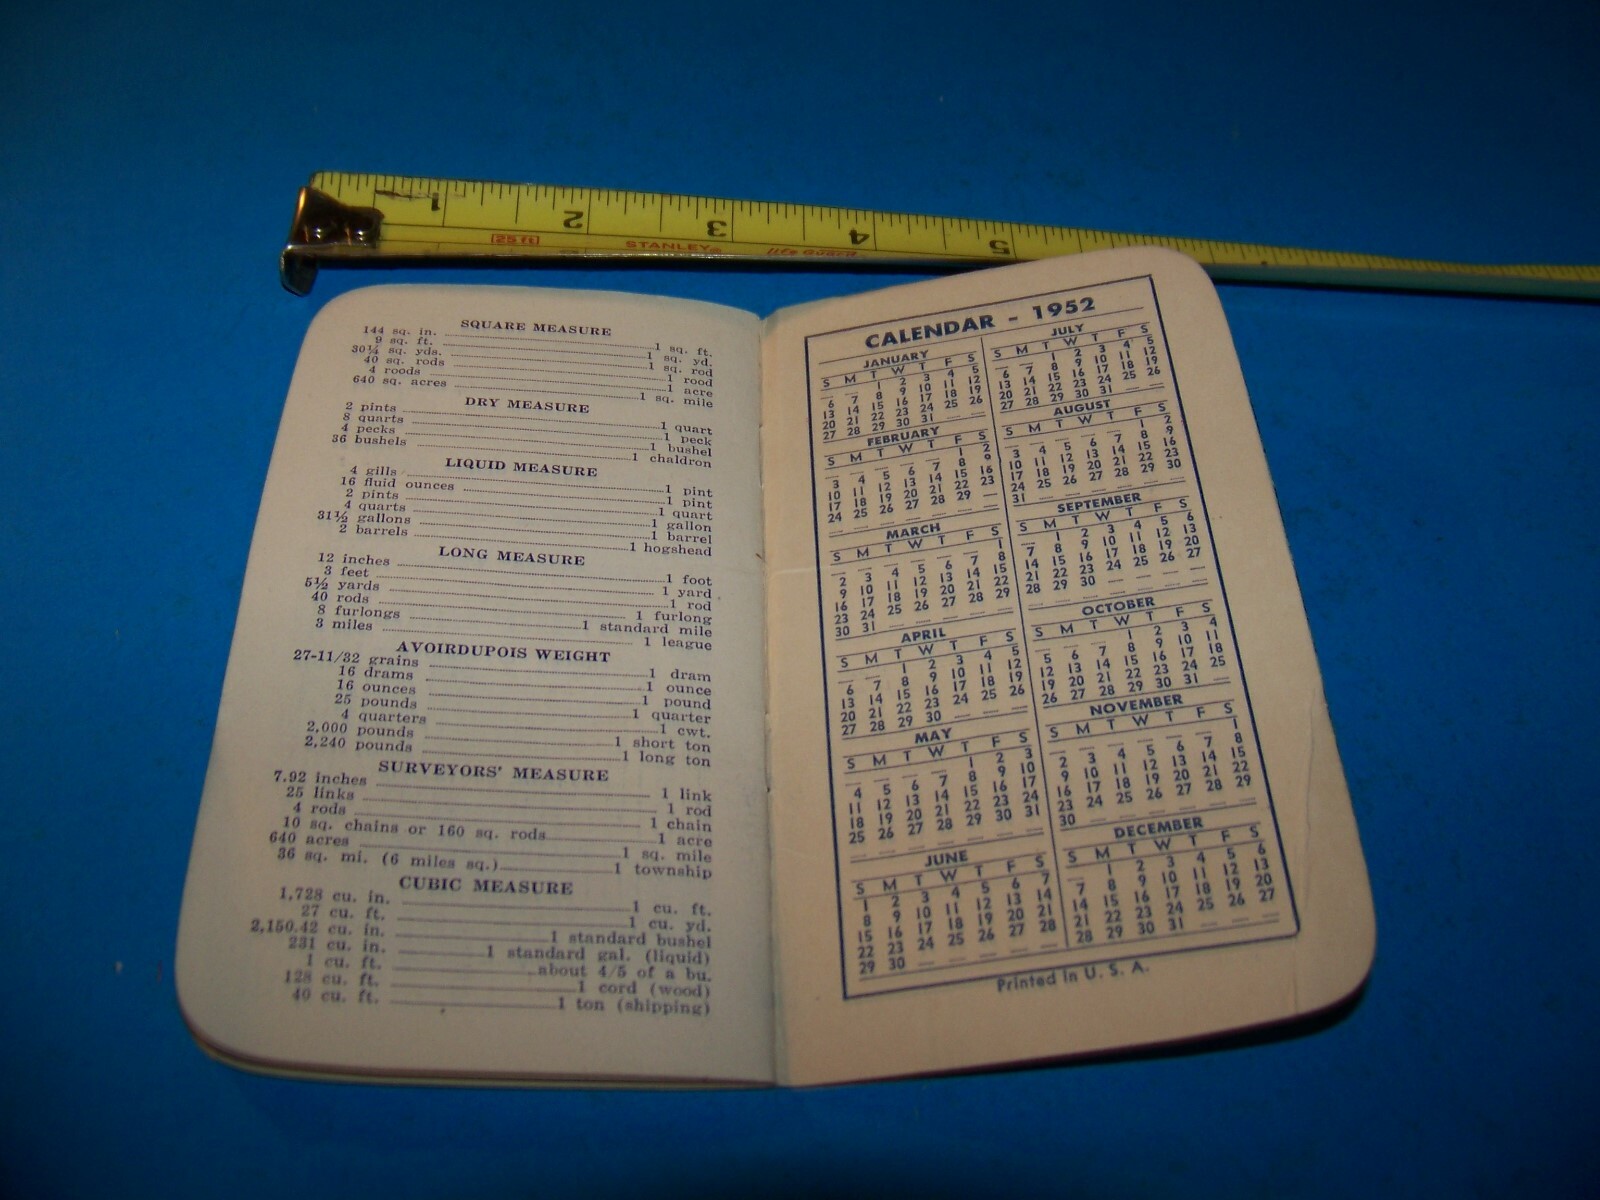 1 2 3 4 5
25 ft STANLEY® life Guard
SQUARE MEASURE
144 sq. in. 1 sq. ft.
9 sq. ft. 1 sq. yd.
30¼ sq. yds. 1 sq. rod
40 sq. rods 1 rood
4 roods 1 acre
640 sq. acres 1 sq. mile
DRY MEASURE
2 pints 1 quart
8 quarts 1 peck
4 pecks 1 bushel
36 bushels 1 chaldron
LIQUID MEASURE
4 gills 1 pint
16 fluid ounces 1 pint
2 pints 1 quart
4 quarts 1 gallon
31½ gallons 1 barrel
2 barrels 1 hogshead
LONG MEASURE
12 inches 1 foot
3 feet 1 yard
5½ yards 1 rod
40 rods 1 furlong
8 furlongs 1 standard mile
3 miles 1 league
AVOIRDUPOIS WEIGHT
27-11/32 grains 1 dram
16 drams 1 ounce
16 ounces 1 pound
25 pounds 1 quarter
4 quarters 1 cwt.
2,000 pounds 1 short ton
2,240 pounds 1 long ton
SURVEYORS' MEASURE
7.92 inches 1 link
25 links 1 rod
4 rods 1 chain
10 sq. chains or 160 sq. rods 1 acre
640 acres 1 sq. mile
36 sq. mi. (6 miles sq.) 1 township
CUBIC MEASURE
1,728 cu. in. 1 cu. ft.
27 cu. ft. 1 cu. yd.
2,150.42 cu. in. 1 standard bushel
231 cu. in. 1 standard gal. (liquid)
1 cu. ft. about 4/5 of a bu.
128 cu. ft. 1 cord (wood)
40 cu. ft. 1 ton (shipping)
CALENDAR - 1952
JANUARY
S M T W T F S
1 2 3 4 5
6 7 8 9 10 11 12
13 14 15 16 17 18 19
20 21 22 23 24 25 26
27 28 29 30 31
FEBRUARY
S M T W T F S
1 2
3 4 5 6 7 8 9
10 11 12 13 14 15 16
17 18 19 20 21 22 23
24 25 26 27 28 29
MARCH
S M T W T F S
1
2 3 4 5 6 7 8
9 10 11 12 13 14 15
16 17 18 19 20 21 22
23 24 25 26 27 28 29
30 31
APRIL
S M T W T F S
1 2 3 4 5
6 7 8 9 10 11 12
13 14 15 16 17 18 19
20 21 22 23 24 25 26
27 28 29 30
MAY
S M T W T F S
1 2 3
4 5 6 7 8 9 10
11 12 13 14 15 16 17
18 19 20 21 22 23 24
25 26 27 28 29 30 31
JUNE
S M T W T F S
1 2 3 4 5 6 7
8 9 10 11 12 13 14
15 16 17 18 19 20 21
22 23 24 25 26 27 28
29 30
JULY
S M T W T F S
1 2 3 4 5
6 7 8 9 10 11 12
13 14 15 16 17 18 19
20 21 22 23 24 25 26
27 28 29 30 31
AUGUST
S M T W T F S
1 2
3 4 5 6 7 8 9
10 11 12 13 14 15 16
17 18 19 20 21 22 23
24 25 26 27 28 29 30
31
SEPTEMBER
S M T W T F S
1 2 3 4 5 6
7 8 9 10 11 12 13
14 15 16 17 18 19 20
21 22 23 24 25 26 27
28 29 30
OCTOBER
S M T W T F S
1 2 3 4
5 6 7 8 9 10 11
12 13 14 15 16 17 18
19 20 21 22 23 24 25
26 27 28 29 30 31
NOVEMBER
S M T W T F S
1
2 3 4 5 6 7 8
9 10 11 12 13 14 15
16 17 18 19 20 21 22
23 24 25 26 27 28 29
30
DECEMBER
S M T W T F S
1 2 3 4 5 6
7 8 9 10 11 12 13
14 15 16 17 18 19 20
21 22 23 24 25 26 27
28 29 30 31
Printed in U. S. A.